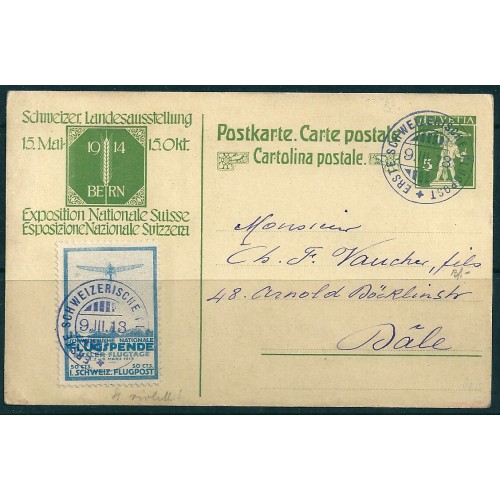 Schweizer. Landesausstellung
15. Mai 15. Okt.
19 14
BERN
Exposition Nationale Suisse
Esposizione Nazionale Svizzera
Postkarte. Carte postale.
Cartolina postale.
HELVETIA
5
ERSTE SCHWEIZERISCHE
9.III.13
SCHWEIZERISCHE NATIONALE
FLUGSPENDE
BASLER FLUGTAGE
50 CTS. 50 CTS.
I. SCHWEIZ. FLUGPOST
Monsieur
Ch. F. Vaucher, fils
48. Arnold Böcklinstr
Bâle